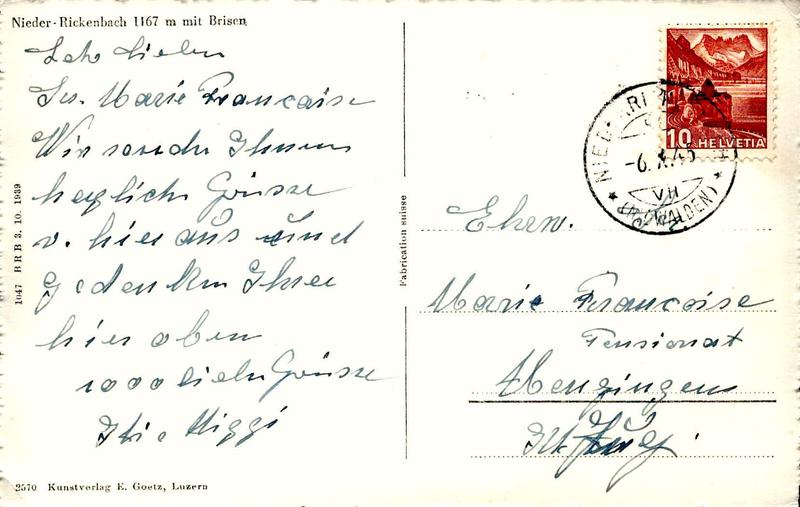 Nieder-Rickenbach 1167 m mit Brisen
Sehr Lieben
Sr. Marie Françoise
Wir senden Ihnen
herzliche Grüsse
v. hier aus und
gedenken Ihrer
hier oben
1000 liebe Grüsse
1047 BRB 3. 10. 1939
Fabrication suisse
2570 Kunstverlag E. Goetz, Luzern
10 HELVETIA
-6. X. 43
VII
(NIDWALDEN)
Ehrw.
Marie Françoise
Pensionat
Menzingen
Kt. Zug.